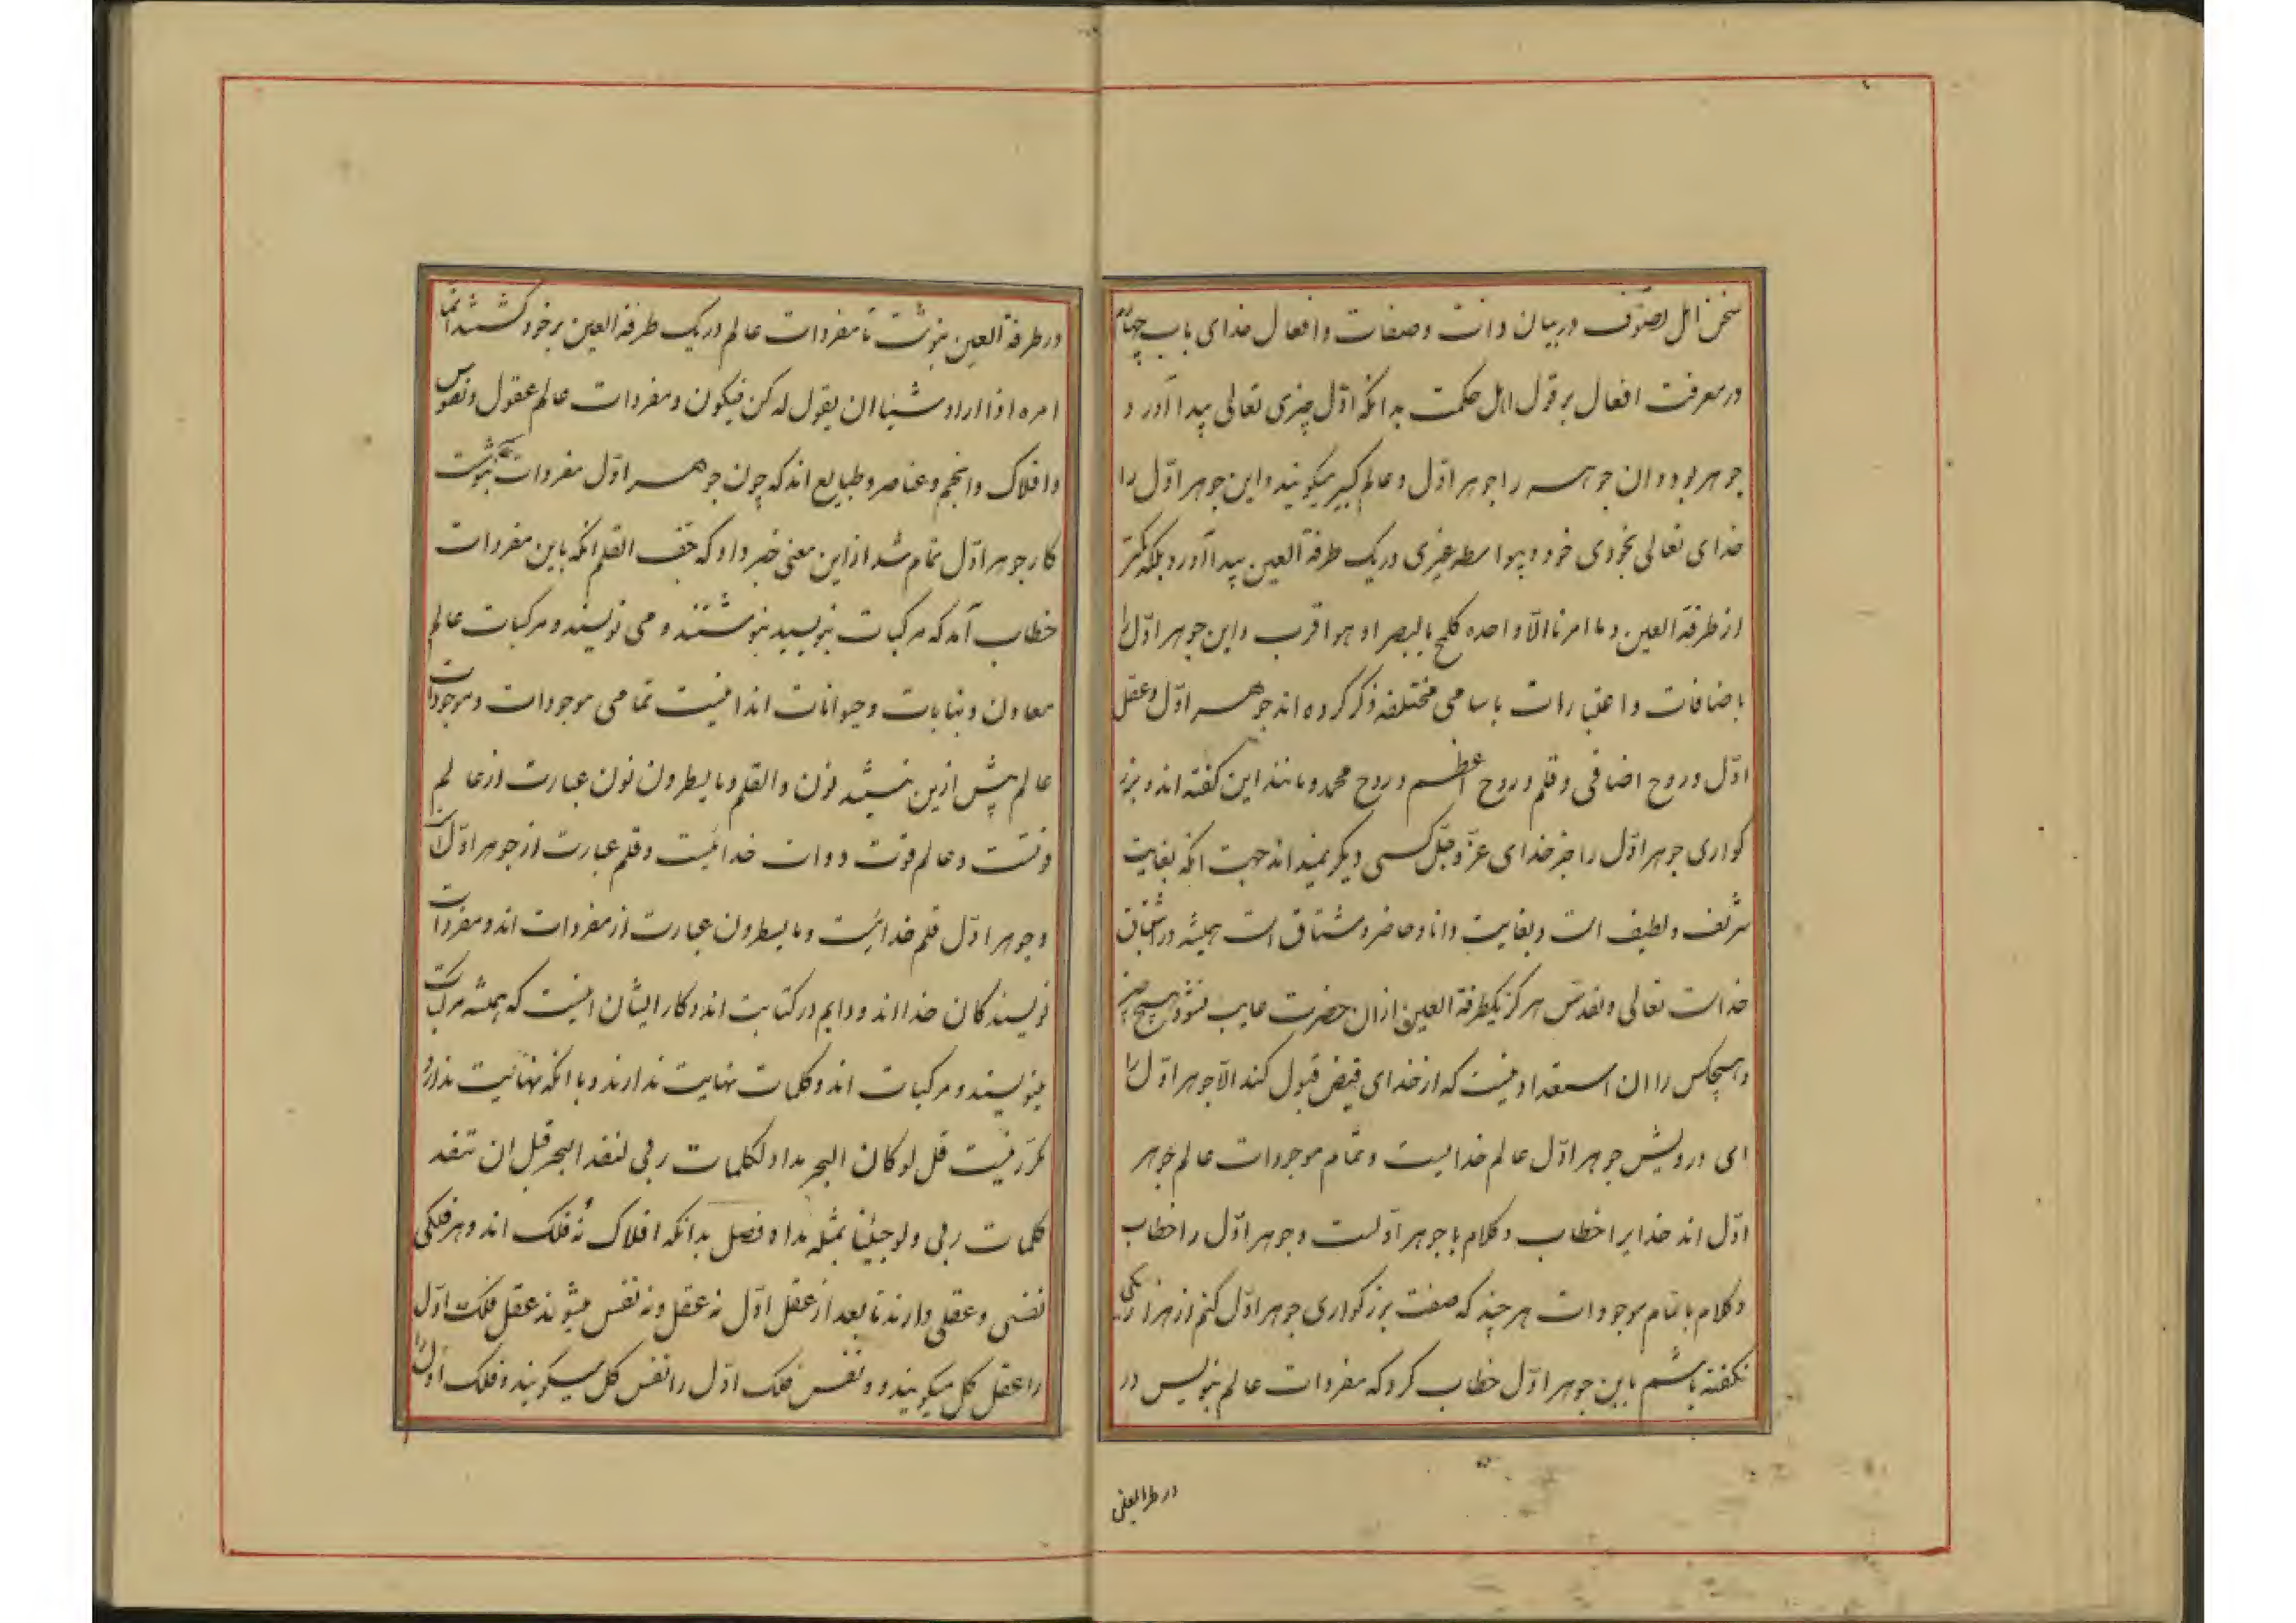 سخن اهل تصوّف در بیان ذات و صفات و افعال خدای باب چهارم
در معرفت افعال بر قول اهل حکمت بدانکه اوّل چیزی تعالی پیدا آورد و
جوهر بود و ان جوهر را جوهر اوّل و عالم کبیر میکویند و این جوهر اوّل را
خدای تعالی بخودی خود و بیواسطه غیری در یک طرفة العین پیدا آورد بلکه کمتر
از طرفة العین و ما امرنا الّا واحده کلمح بالبصر او هو اقرب و این جوهر اوّل را
باضافات و اعتبارات باسامی مختلفه ذکر کرده اند جوهر اوّل و عقل
اوّل و روح اضافی و قلم و روح اعظم و روح محمد و مانند این کفته اند و بزر
کواری جوهر اوّل را جز خدای عزّ و جلّ کسی دیکر نمیداند جهت انکه بغایت
شریف و لطیف است و بغایت دانا و حاضر و مشتاق است همیشه در اشتیاق
خداست تعالی و تقدّس هرکز یکطرفة العین از ان حضرت غایب نشود هیچ چیز
و هیچکس را ان استعداد نیست که از خدای فیض قبول کند الّا جوهر اوّل را
ای درویش جوهر اوّل عالم خدایست و تمام موجودات عالم جوهر
اوّل اند خدایرا خطاب و کلام با جوهر اوّلست و جوهر اوّل را خطاب
و کلام با تمام موجودات هر چند که صفت بزرکواری جوهر اوّل کنم از هزار یکی
نکفته باشم باین جوهر اوّل خطاب کرد که مفردات عالم بنویس در
در طرفة العین
در طرفة العین بنوشت تا مفردات عالم در یک طرفة العین بر خود کشیدند انّما
امره اذا اراد شیئا ان یقول له کن فیکون و مفردات عالم عقول و نفوس
و افلاک و انجم و عناصر و طبایع اند که چون جوهر اوّل مفردات بنوشت
کار جوهر اوّل تمام شد از این معنی خبر داد که جفّ القلم انکه باین مفردات
خطاب آمد که مرکبات بنویسید بنوشتند و می نویسند و مرکبات عالم
معادن و نباتات و حیوانات اند اینست تمامی موجودات و موجودات
عالم پیش ازین نیستند نون و القلم و ما یسطرون نون عبارت از عالم
و عالم قوت دوات خدائیست و قلم عبارت از جوهر اوّل است
و جوهر اوّل قلم خدائیست و ما یسطرون عبارت از مفردات اند و مفردات
نویسندکان خدااند و دایم در کتابت اند و کار ایشان اینست که همیشه مرکبات
مینویسند و مرکبات اند و کلمات نهایت ندارند و با انکه نهایت ندارد
مکرّر نیست قل لو کان البحر مدادا لکلمات ربی لنفد البحر قبل ان تنفد
کلمات ربی و لو جئنا بمثله مددا فصل بدانکه افلاک نُه فلک اند و هر فلکی
نفسی و عقلی دارند تا بعد از عقل اوّل نه عقل و نه نفس میشوند عقل فلک اوّل
را عقل کل میکویند و نفس فلک اوّل را نفس کل میکویند و فلک اوّل را